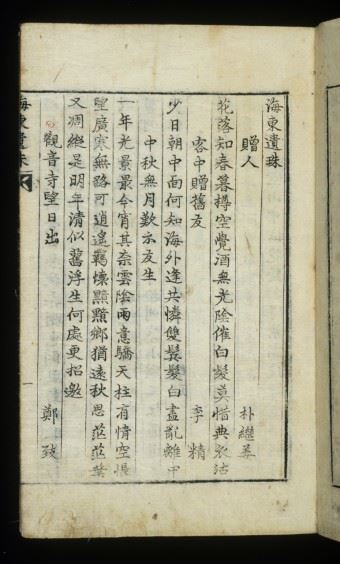 海東遺珠
贈人 朴繼姜
花落知春暮樽空覺酒無光陰催白髮莫惜典衣沽
客中贈舊友 李精
少日朝中面何知海外逢共憐雙鬢髮白盡亂離中
中秋無月歎示友生
一年光景最今宵其奈雲陰雨意驕天柱有情空悵
望廣寒無路可逍遙羈懷黯黯鄉猶遠秋思茫茫葉
又凋縱是明年清似舊浮生何處更招邀
觀音寺望日出 鄭致
海東遺珠 一